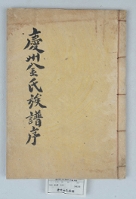 慶州金氏族譜序